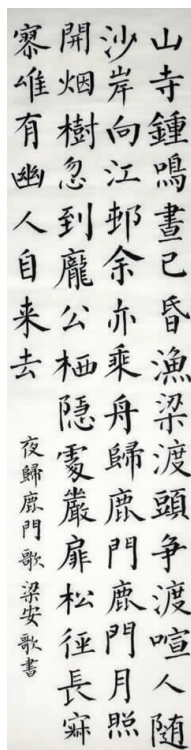 山寺鍾鳴晝已昏漁梁渡頭爭渡喧人随
沙岸向江邨余亦乘舟歸鹿門鹿門月照
開烟樹忽到龐公栖隱處巖扉松徑長寂
寥唯有幽人自来去
夜歸鹿門歌 梁安歌書